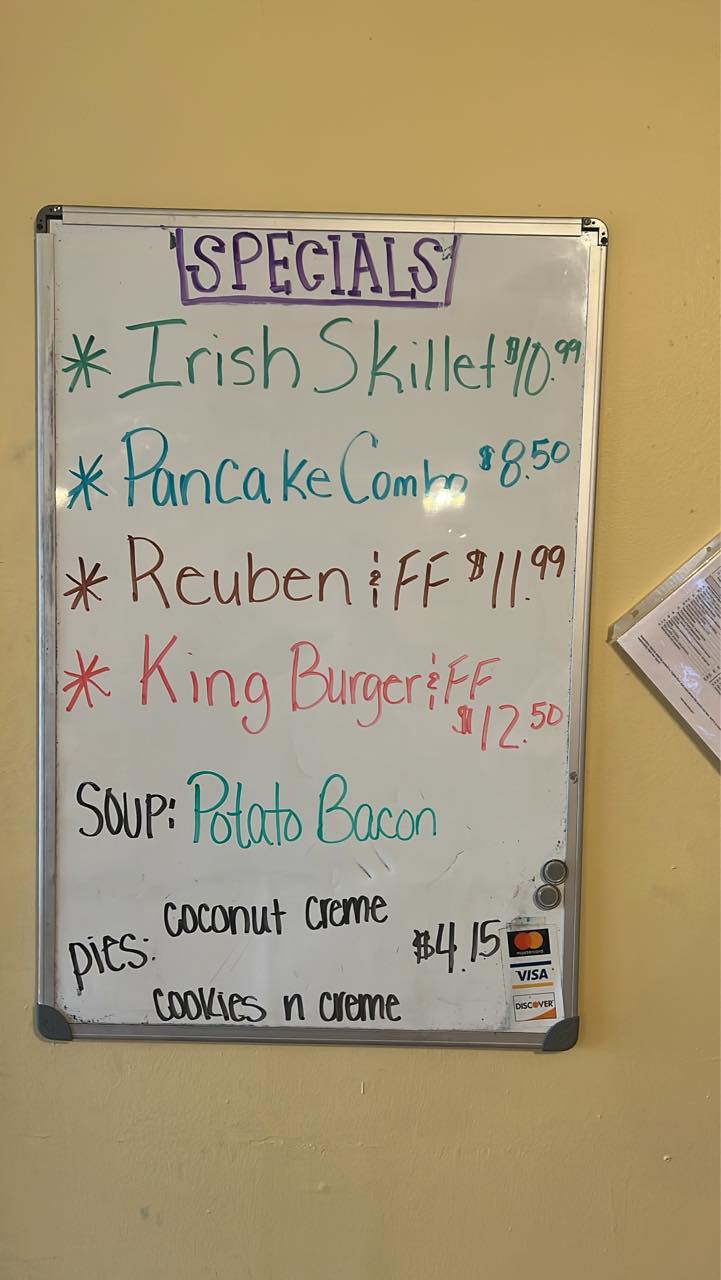 SPECIALS
* Irish Skillet $10.99
* Pancake Combo $8.50
* Reuben & FF $11.99
* King Burger & FF
$12.50
SOUP: Potato Bacon
coconut creme
pies: $4.15
cookies n creme
mastercard
VISA
DISCOVER